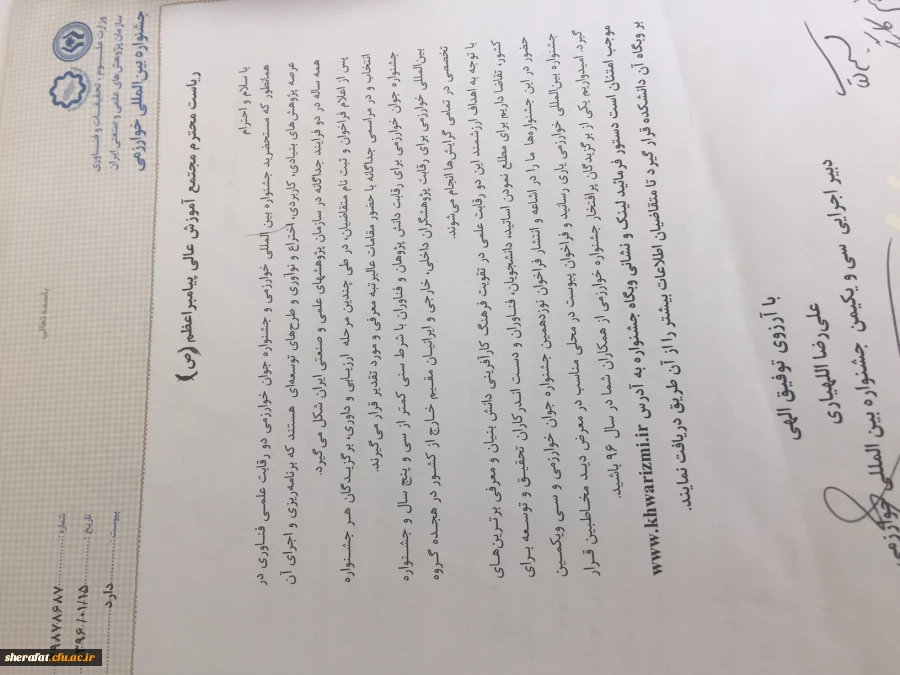 باسمه تعالی
وزارت علوم، تحقیقات و فناوری
سازمان پژوهش‌های علمی و صنعتی ایران
جشنواره بین‌المللی خوارزمی
شماره:
۹۸۷۸۶۸۷
تاریخ
۳۹۶/۰۱/۱۵
پیوست
دارد
ریاست محترم مجتمع آموزش عالی پیامبر اعظم (ص)
با سلام و احترام
همانطور که مستحضرید جشنواره بین المللی خوارزمی و جشنواره جوان خوارزمی دو رقابت علمی فناوری در
عرصه پژوهش‌های بنیادی، کاربردی، اختراع و نوآوری و طرح‌های توسعه‌ای هستند که برنامه‌ریزی و اجرای آن
همه ساله در دو فرایند جداگانه در سازمان پژوهشهای علمی و صنعتی ایران شکل می‌گیرد.
پس از اعلام فراخوان و ثبت نام متقاضیان، در طی چندین مرحله ارزیابی و داوری، برگزیدگان هر جشنواره
انتخاب و در مراسمی جداگانه با حضور مقامات عالیرتبه معرفی و مورد تقدیر قرار می‌گیرند.
جشنواره جوان خوارزمی برای رقابت دانش پژوهان و فناوران با شرط سنی کمتر از سی و پنج سال و جشنواره
بین‌المللی خوارزمی برای رقابت پژوهشگران داخلی، خارجی و ایرانیان مقیم خارج از کشور در هجده گروه
تخصصی در تمامی گرایش‌ها انجام می‌شوند.
با توجه به اهداف ارزشمند این دو رقابت علمی در تقویت فرهنگ کارآفرینی دانش بنیان و معرفی برترین‌های
کشور، تقاضا داریم برای مطلع نمودن اساتید، دانشجویان، فناوران و دست اندرکاران تحقیق و توسعه برای
حضور در این جشنواره‌ها ما را در اشاعه و انتشار فراخوان نوزدهمین جشنواره جوان خوارزمی و سی ویکمین
جشنواره بین‌المللی خوارزمی یاری رسانید و فراخوان پیوست در محلی مناسب در معرض دید مخاطبین قرار
گیرد. امیدواریم یکی از برگزیدگان پرافتخار جشنواره خوارزمی از همکاران شما در سال ۹۶ باشید.
موجب امتنان است دستور فرمائید لینک و نشانی وبگاه جشنواره به آدرس www.khwarizmi.ir
بر وبگاه آن دانشکده قرار گیرد تا متقاضیان اطلاعات بیشتر را از آن طریق دریافت نمایند.
با آرزوی توفیق الهی
علی‌رضا اللهیاری
دبیر اجرایی سی و یکیمن جشنواره بین المللی خوارزمی
sherafat.cfu.ac.ir